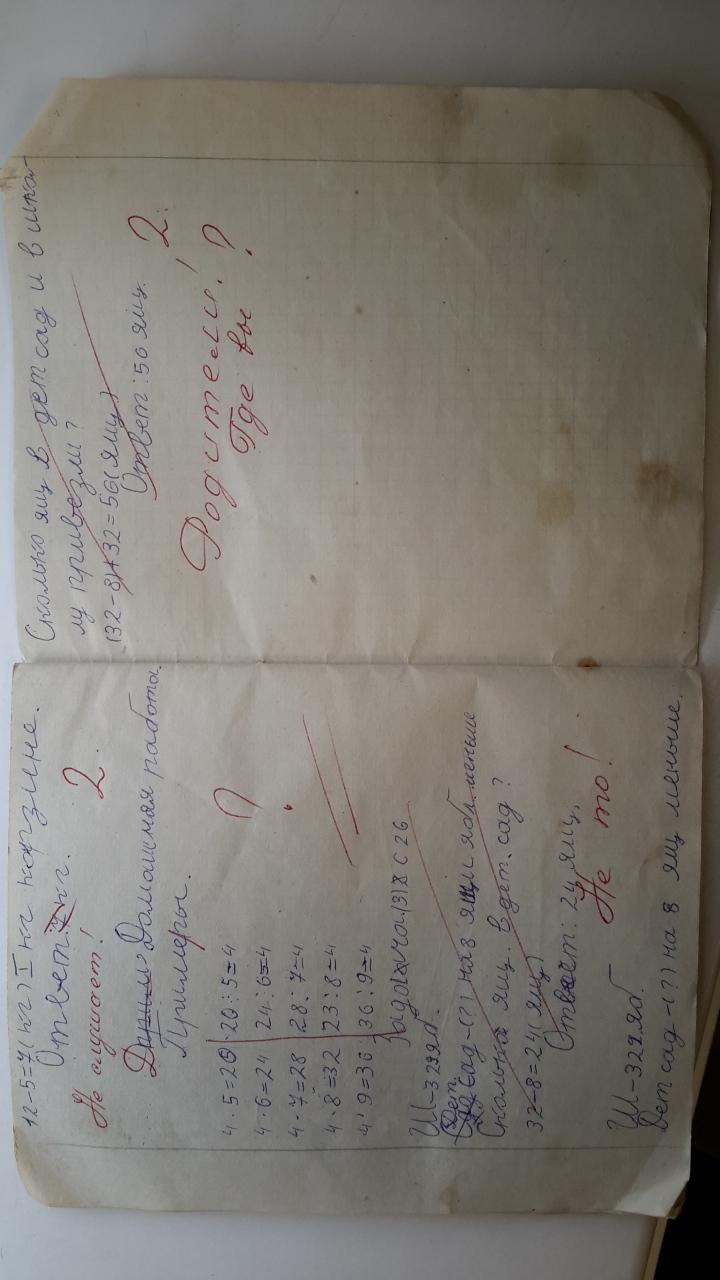 12-5=7(кг) I кг корзине.
Ответ: 7 кг.
Не слушает! 2
Домашняя работа.
Примеры.
4·5=20 20:5=4
4·6=24 24:6=4
4·7=28 28:7=4
4·8=32 23:8=4
4·9=36 36:9=4
Задача (3) С 26
Ш-32яб.
Дет сад-(?) на 8 ящ меньше
Сколько ящ. в дет. сад?
32-8=24(ящ)
Ответ: 24 ящ.
Не то!
Ш-32яб.
Дет сад-(?) на 8 ящ меньше.
Сколько ящ в дет сад и в шко-
лу привезли?
(32-8)+32=56(ящ)
Ответ: 56 ящ. 2.
Родители!
Где вы ?